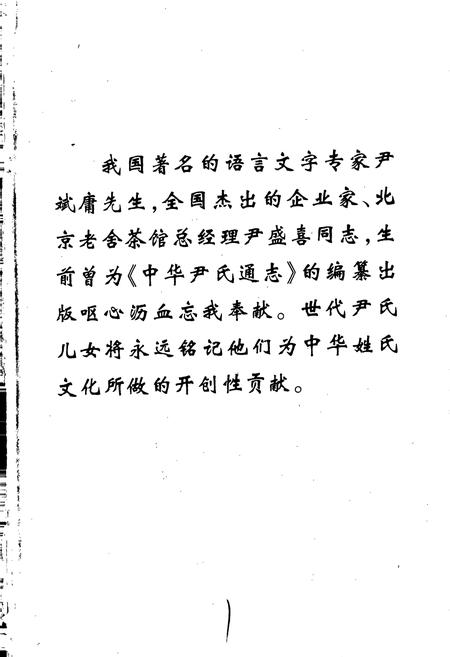 我国著名的语言文字专家尹
斌庸先生，全国杰出的企业家、北
京老舍茶馆总经理尹盛喜同志，生
前曾为《中华尹氏通志》的编纂出
版呕心沥血忘我奉献。世代尹氏
儿女将永远铭记他们为中华姓氏
文化所做的开创性贡献。